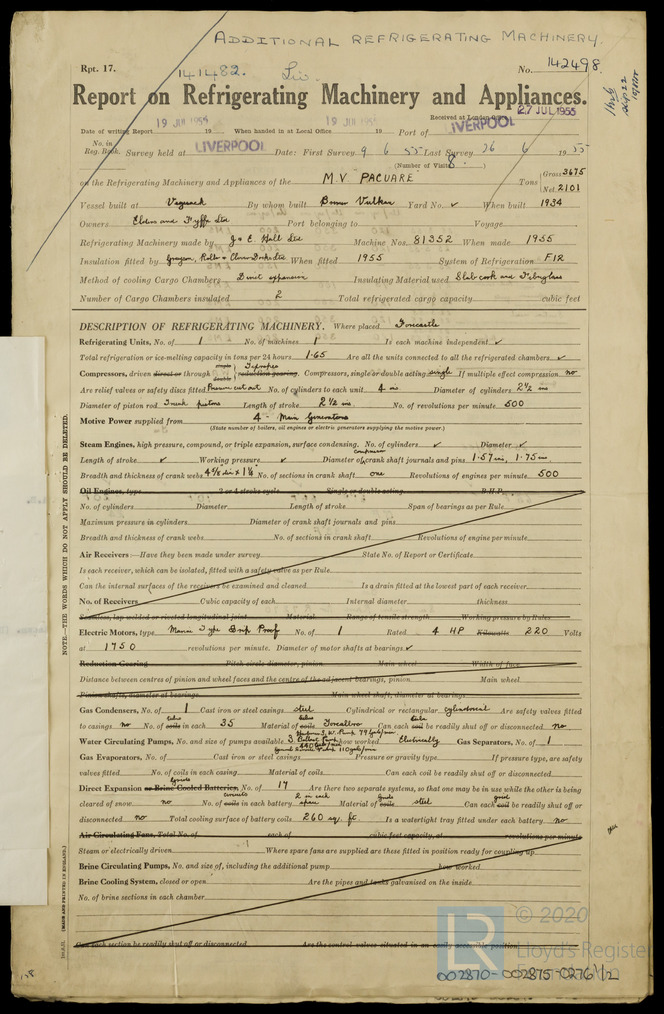 ADDITIONAL REFRIGERATING MACHINERY.
Rpt. 17. 141482. Liv. No. 142498
Report on Refrigerating Machinery and Appliances.
Received at London Office 27 JUL 1955
Date of writing Report 19 JUL 1955 19 When handed in at Local Office 19 JUL 1955 19 Port of LIVERPOOL
No. in Reg. Book. Survey held at LIVERPOOL Date: First Survey 9 6 55 Last Survey 26 6 1955
(Number of Visits 8 )
on the Refrigerating Machinery and Appliances of the M.V. PACUARE Tons Gross 3675 Net 2101
Vessel built at Vegesack By whom built Bremer Vulkan Yard No. When built 1934
Owners Elders and Fyffes Ltd Port belonging to Voyage
Refrigerating Machinery made by J & E. Hall Ltd Machine Nos. 81352 When made 1955
Insulation fitted by Grayson, Rollo & Clover Docks Ltd When fitted 1955 System of Refrigeration F12
Method of cooling Cargo Chambers Direct expansion Insulating Material used Slab cork and Fibreglass
Number of Cargo Chambers insulated 2 Total refrigerated cargo capacity cubic feet
DESCRIPTION OF REFRIGERATING MACHINERY. Where placed Forecastle
Refrigerating Units, No. of 1 No. of machines 1 Is each machine independent ✓
Total refrigeration or ice-melting capacity in tons per 24 hours 1.65 Are all the units connected to all the refrigerated chambers ✓
Compressors, driven direct or through single double reduction gearing. Compressors, single or double acting single If multiple effect compression no
Are relief valves or safety discs fitted Pressure cut out No. of cylinders to each unit 4 Diameter of cylinders 2½ ins
Diameter of piston rod Trunk pistons Length of stroke 2½ ins. No. of revolutions per minute 500
Motive Power supplied from 4 - Main Generators
(State number of boilers, oil engines or electric generators supplying the motive power.)
Steam Engines, high pressure, compound, or triple expansion, surface condensing. No. of cylinders ✓ Diameter ✓
Length of stroke ✓ Working pressure ✓ Diameter of compressor crank shaft journals and pins 1.57 ins, 1.75 ins
Breadth and thickness of crank webs No. of sections in crank shaft one Revolutions of engines per minute 500
Oil Engines, type 2 or 4 stroke cycle Single or double acting B.H.P.
No. of cylinders Diameter Length of stroke Span of bearings as per Rule
Maximum pressure in cylinders Diameter of crank shaft journals and pins
Breadth and thickness of crank webs No. of sections in crank shaft Revolutions of engine per minute
Air Receivers:—Have they been made under survey State No. of Report or Certificate
Is each receiver, which can be isolated, fitted with a safety valve as per Rule
Can the internal surfaces of the receivers be examined and cleaned Is a drain fitted at the lowest part of each receiver
No. of Receivers Cubic capacity of each Internal diameter thickness
Seamless, lap welded or riveted longitudinal joint Material Range of tensile strength Working pressure by Rules
Electric Motors, type Marine Type Drip Proof No. of 1 Rated 4 HP Kilowatts 220 Volts
at 1750 revolutions per minute. Diameter of motor shafts at bearings ✓
Reduction Gearing Pitch circle diameter, pinion Main wheel Width of face
Distance between centres of pinion and wheel faces and the centre of the adjacent bearings, pinion Main wheel
Pinion shafts, diameter at bearings Main wheel shaft, diameter at bearings
Gas Condensers, No. of 1 Cast iron or steel casings steel Cylindrical or rectangular cylindrical Are safety valves fitted
to casings no No. of coils tubes in each 35 Material of coils tubes Can each coil tube be readily shut off or disconnected no
Water Circulating Pumps, No. and size of pumps available 3 how worked Electrically Gas Separators, No. of 1
Gas Evaporators, No. of Cast iron or steel casings Pressure or gravity type If pressure type, are safety
valves fitted No. of coils in casing Material of coils Can each coil be readily shut off or disconnected
Direct Expansion or Brine Cooled Batteries, grids No. of 17 Are there two separate systems, so that one may be in use while the other is being
cleared of snow no No. of coils circuits in each battery 2 in each Material of coils grids steel Can each coil grid be readily shut off or
disconnected no Total cooling surface of battery coils 260 sq. ft. Is a watertight tray fitted under each battery no
Air Circulating Fans, Total No. of each of cubic feet capacity, at revolutions per minute
Steam or electrically driven Where spare fans are supplied are these fitted in position ready for coupling up
Brine Circulating Pumps, No. and size of, including the additional pump how worked
Brine Cooling System, closed or open Are the pipes and tanks galvanised on the inside
No. of brine sections in each chamber
Can each section be readily shut off or disconnected Are the control valves situated in an easily accessible position
NOTE.—THE WORDS WHICH DO NOT APPLY SHOULD BE DELETED.
(MADE AND PRINTED IN ENGLAND.)
© 2020
LR
Lloyd's Register
002870-002875-0276 1/2